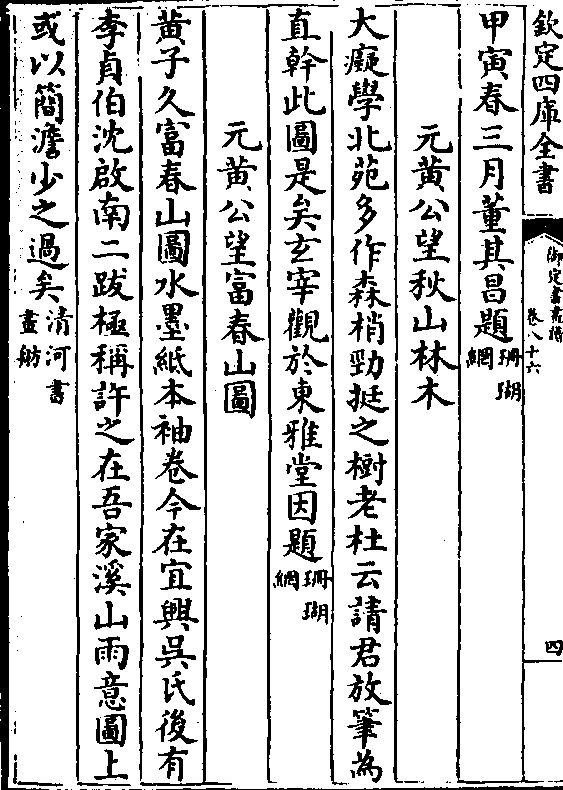 欽定四庫全書
御定書畫譜
卷八十六
四
甲寅春三月董其昌題珊瑚網
元黄公望秋山林木
大癡學北苑多作森梢勁挺之樹老杜云請君放筆為
直幹此圖是矣玄宰觀於東雅堂因題珊瑚網
元黄公望富春山圖
黄子久富春山圖水墨紙本袖卷今在宜興吳氏後有
李貞伯沈啟南二跋極稱許之在吾家溪山雨意圖上
或以簡澹少之過矣清河書畫舫